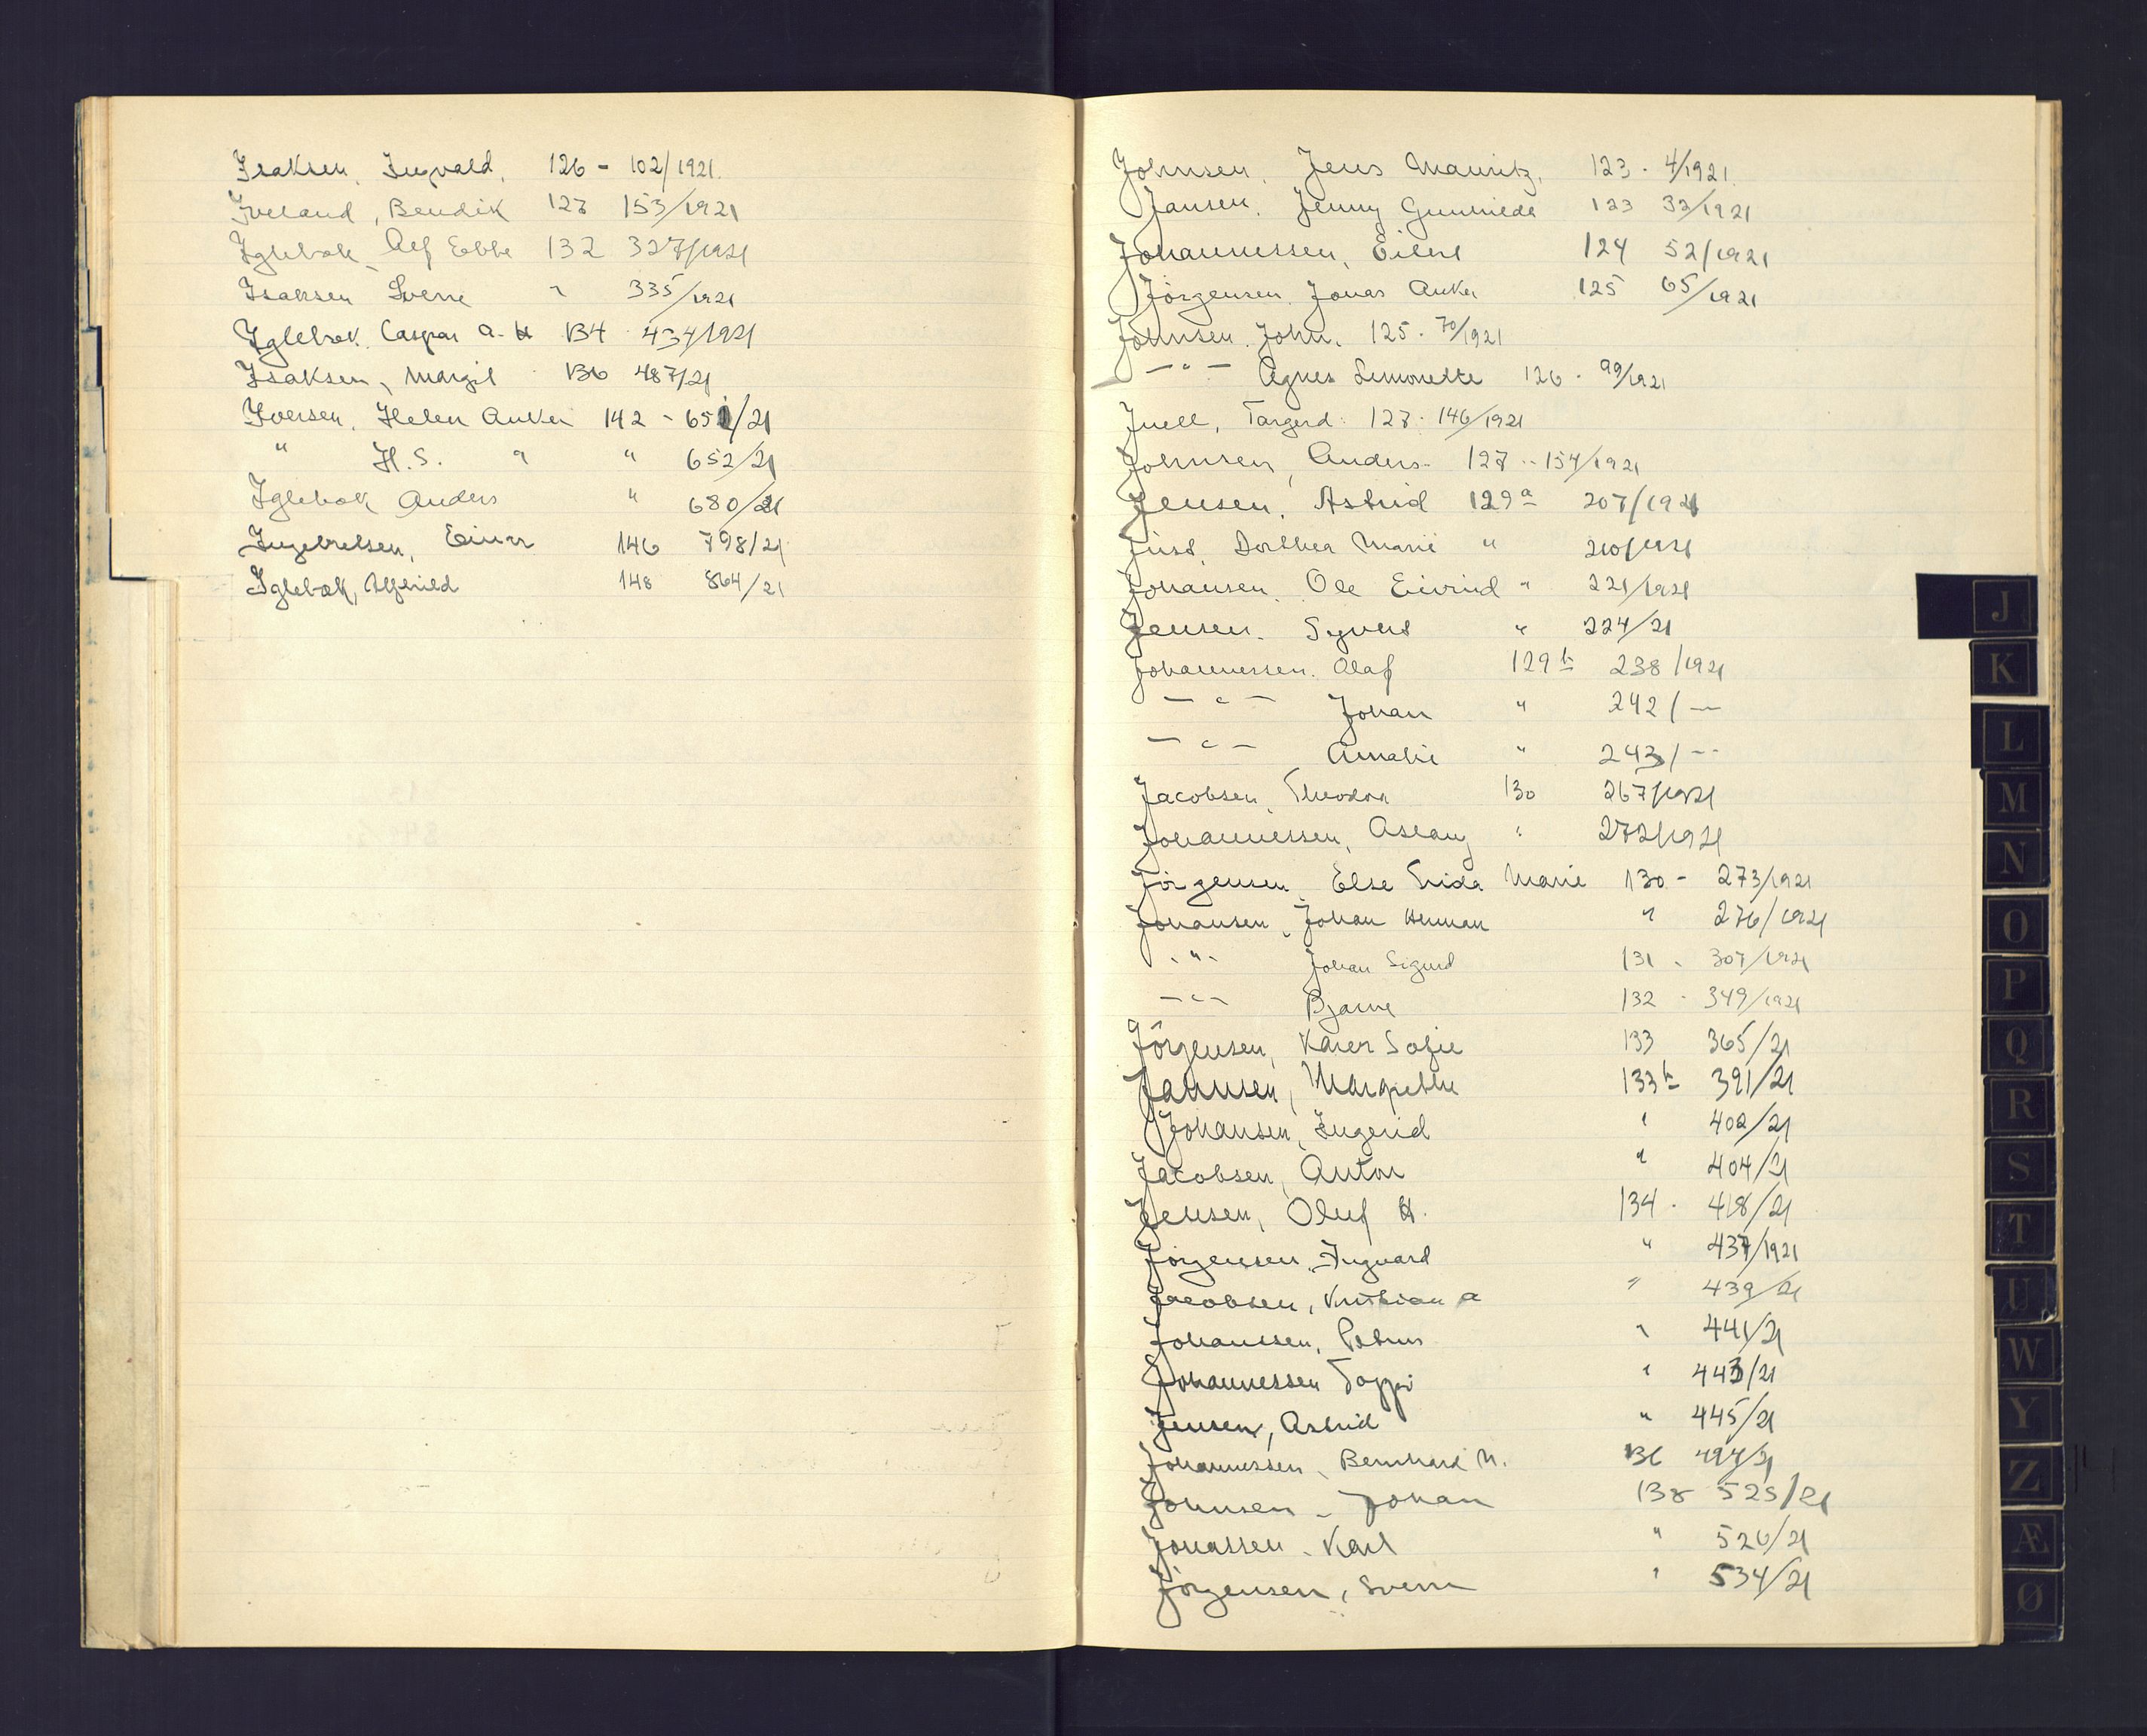 Isaksen, Ingvald, 126 - 102/1921.
Iveland, Bendik 127 153/1921
Iglebæk, Alf Ebbe 132 327/1921
Isaksen Sverre " 335/1921
Iglebæk. Caspar A. H 134 . 434/1921
Isaksen, Margit 136 487/21
Iversen, Helen Anker 142 - 651/21
" H.S. " " 652/21
Iglebæk Anders " 680/21
Ingebretsen, Einar 146 798/21
Iglebæk, Alfhild 148 864/21
Johnsen, Jens Mauritz. 123 . 4/1921
Jansen. Jenny Gunhilda 123 32/1921
Johannessen, Eilert 124 52/1921
Jörgensen. Jonas Anker 125 65/1921
Johnsen. John. 125 . 70/1921
— " — Agnes Simonette 126 . 99/1921
Juell, Targerd 127 . 146/1921
Johnsen, Anders. 127 - 154/1921
Jensen. Astrid 129 a 207/1921
Just Dorthea Marie " 210/1921
Johansen. Ole Eivind " 221/1921
Jensen. Syvert " 224/21
Johannessen. Olaf 129 b 238/1921
— " — Johan " 242/—
— " — Amalie " 243/—
Jacobsen, Theodor 130 267/1921
Johannessen, Aslaug " 272/1921
Jörgensen, Else Frida Marie 130 - 273/1921
Johansen, Johan Herman " 276/1921
- " - Johan Sigurd 131 - 307/1921
— " — Bjarne 132 - 349/1921
Jörgensen, Karen Sofie 133 365/21
Jahnsen, Margrethe 133 b 391/21
Johansen, Ingerid " 402/21
Jacobsen, Anton " 404/21
Jensen, Oluf H. 134 . 418/21
Jörgensen, Ingvard " 437/1921
Jacobsen, Kristian A " 439/21
Johansen, Petrus " 441/21
Johannessen " 443/21
Jensen, Astrid " 445/21
Johannessen, Bernhard M. 136 494/21
Johnsen - Johan 138 525/21
Jonassen. Karl " 526/21
Jörgensen, Sverre " 534/21
J
K
L
M
N
O
P
Q
R
S
T
U
W
Y
Z
Æ
Ø